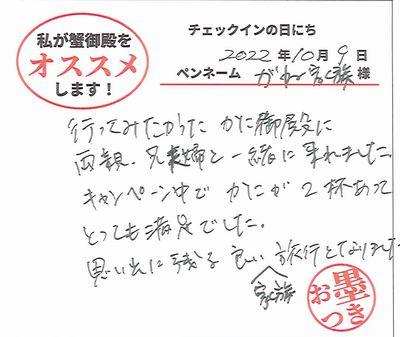 私が蟹御殿を
オススメ
します!
チェックインの日にち
2022年10月9日
ペンネーム がね家族 様
行ってみたかった かに御殿に
両親、兄夫婦と一緒に来れました。
キャンペーン中で かにが2杯あって
とっても満足でした。
思い出に残る 良い家族旅行となりました
お墨つき